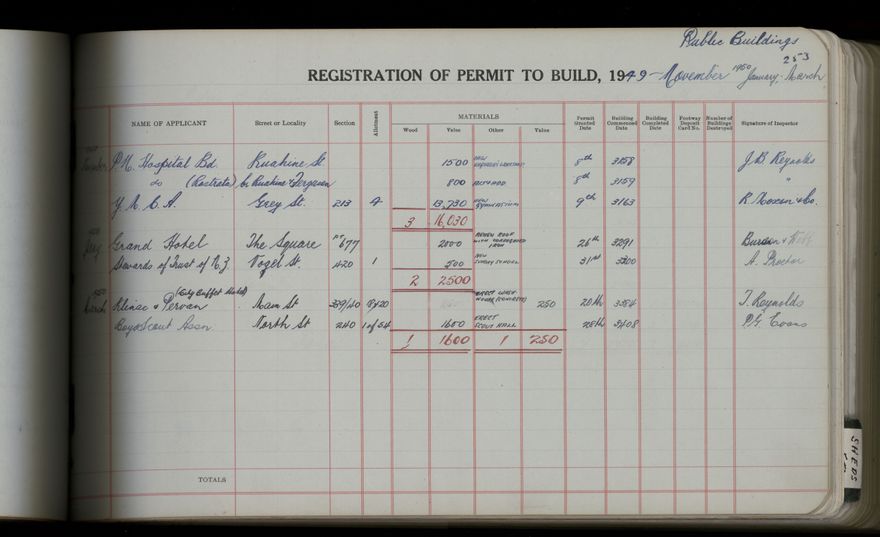 Public Buildings
253
REGISTRATION OF PERMIT TO BUILD, 1949 - November 1950 January, March
NAME OF APPLICANT Street or Locality Section Allotment MATERIALS Permit Granted Date Building Commenced Date Building Completed Date Footway Deposit Card No. Number of Buildings Destroyed Signature of Inspector
Wood Value Other Value
P.N. Hospital Bd. Ruahine St 1500 NEW 8th 3158 J.B. Reynolds
do cr Ruahine & Ferguson 800 8th 3159 "
Y.M.C.A. Grey St. 213 4 13,730 NEW GYMNASIUM 9th 3163
3 16,030
Grand Hotel The Square Pt 677 2000 RENEW ROOF WITH CORRUGATED IRON 26th 3291
Stewards of Trust of N.Z. Vogel St. 420 1 500 NEW SUNDAY SCHOOL 31st 3300 A. Proctor
2 2500
1950 March Klinac & Pervan (City Buffet Hotel) Main St 339/40 ERECT WASH HOUSE (CONCRETE) 250 20th 3354 T. Reynolds
Boys Scout Assn. North St 240 1 of 54 1600 ERECT SCOUT HALL 28th 3408 P.G. Evans
1 1600 1 250
TOTALS
SHEDS